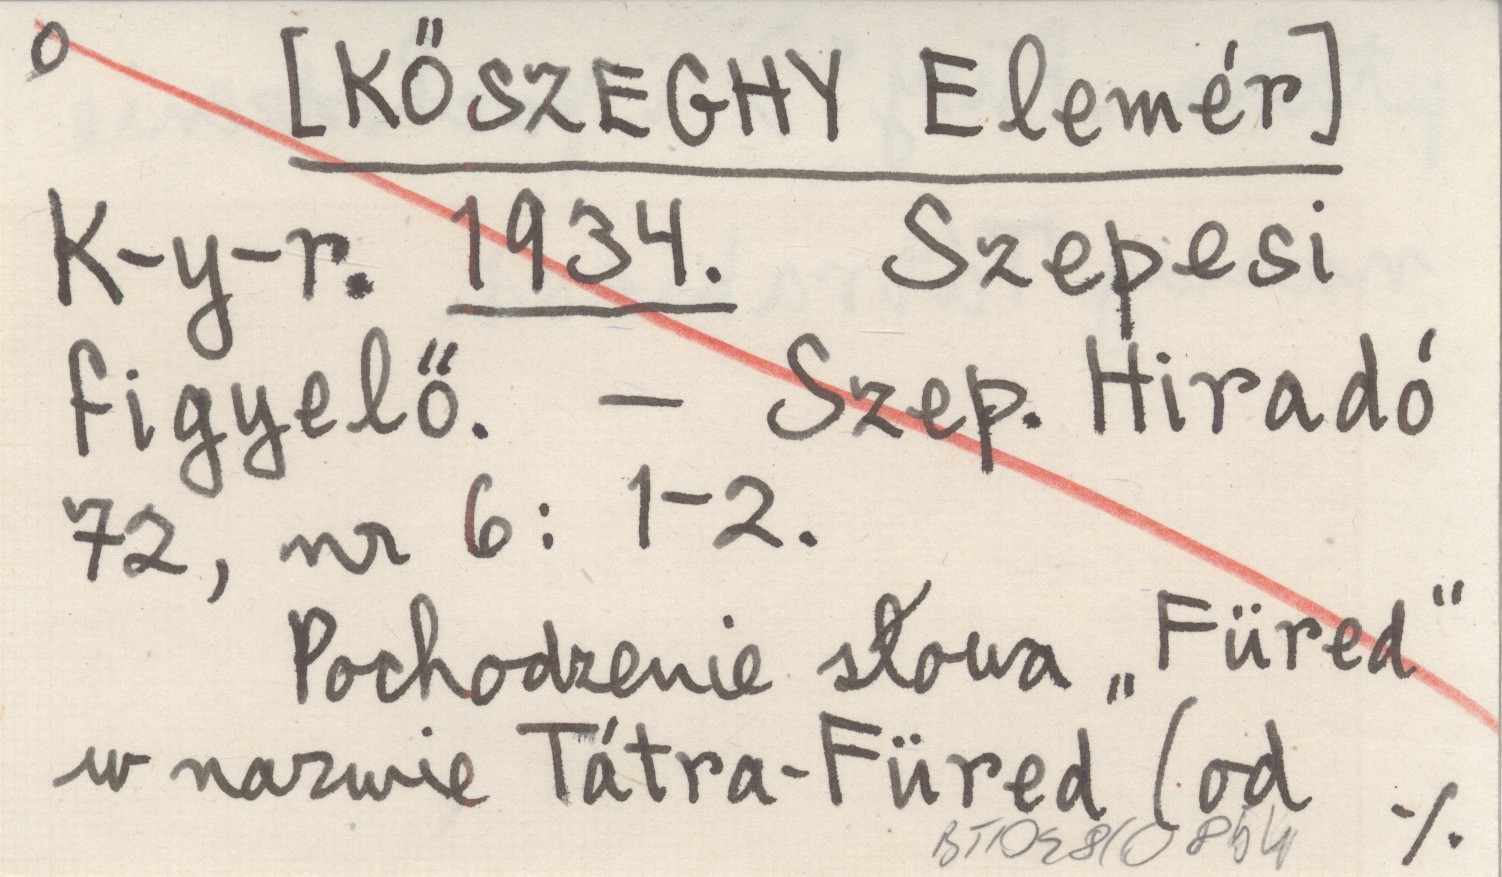 o [KŐSZEGHY Elemér]
K-y-r. 1934. Szepesi
figyelő. — Szep. Hiradó
72, nr 6: 1-2.
Pochodzenie słowa „Füred"
w nazwie Tátra-Füred (od -/.